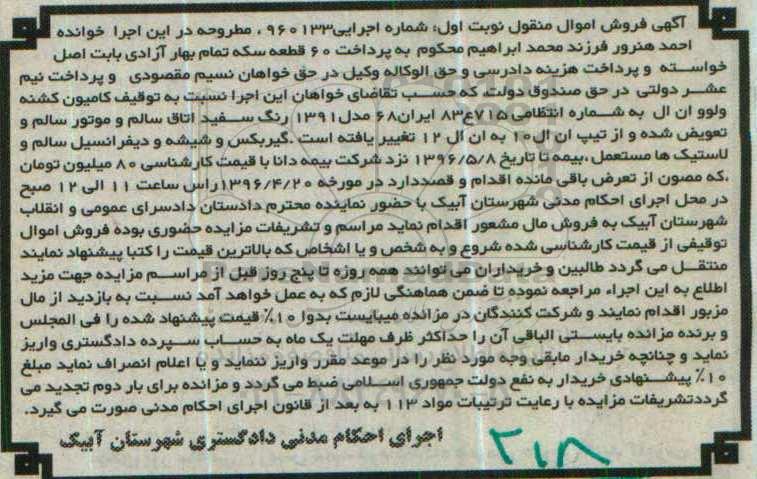 آگهی فروش اموال منقول نوبت اول: شماره اجرایی۹۶۰۱۳۳ ، مطروحه در این اجرا خوانده
احمد هنرور فرزند محمد ابراهیم محکوم به پرداخت ۶۰ قطعه سکه تمام بهار آزادی بابت اصل
خواسته و پرداخت هزینه دادرسی و حق الوکاله وکیل در حق خواهان نسیم مقصودی و پرداخت نیم
عشر دولتی در حق صندوق دولت، که حسب تقاضای خواهان این اجرا نسبت به توقیف کامیون کشنده
ولوو ان ال به شماره انتظامی ۷۱۵ع۸۳ ایران۶۸ مدل۱۳۹۱ رنگ سفید اتاق سالم و موتور سالم و
تعویض شده و از تیپ ان ال۱۰ به ان ال ۱۲ تغییر یافته است .گیربکس و شیشه و دیفرانسیل سالم و
لاستیک ها مستعمل،بیمه تا تاریخ ۱۳۹۶/۵/۸ نزد شرکت بیمه دانا با قیمت کارشناسی ۸۰ میلیون تومان
،که مصون از تعرض باقی مانده اقدام و قصددارد در مورخه ۱۳۹۶/۴/۲۰راس ساعت ۱۱ الی ۱۲ صبح
در محل اجرای احکام مدنی شهرستان آبیک با حضور نماینده محترم دادستان دادسرای عمومی و انقلاب
شهرستان آبیک به فروش مال مشعور اقدام نماید مراسم و تشریفات مزایده حضوری بوده فروش اموال
توقیفی از قیمت کارشناسی شده شروع و به شخص و یا اشخاص که بالاترین قیمت را کتبا پیشنهاد نمایند
منتقل می گردد طالبین و خریداران می توانند همه روزه تا پنج روز قبل از مراسم مزایده جهت مزید
اطلاع به این اجراء مراجعه نموده تا ضمن هماهنگی لازم که به عمل خواهد آمد نسبت به بازدید از مال
مزبور اقدام نمایند و شرکت کنندگان در مزائده میبایست بدوا ۱۰٪ قیمت پیشنهاد شده را فی المجلس
و برنده مزائده بایستی الباقی آن را حداکثر ظرف مهلت یک ماه به حساب سپرده دادگستری واریز
نماید و چنانچه خریدار مابقی وجه مورد نظر را در موعد مقرر واریز ننماید و یا اعلام انصراف نماید مبلغ
۱۰٪ پیشنهادی خریدار به نفع دولت جمهوری اسلامی ضبط می گردد و مزائده برای بار دوم تجدید می
گرددتشریفات مزایده با رعایت ترتیبات مواد ۱۱۳ به بعد از قانون اجرای احکام مدنی صورت می گیرد.
اجرای احکام مدنی دادگستری شهرستان آبیک
۲۱۸